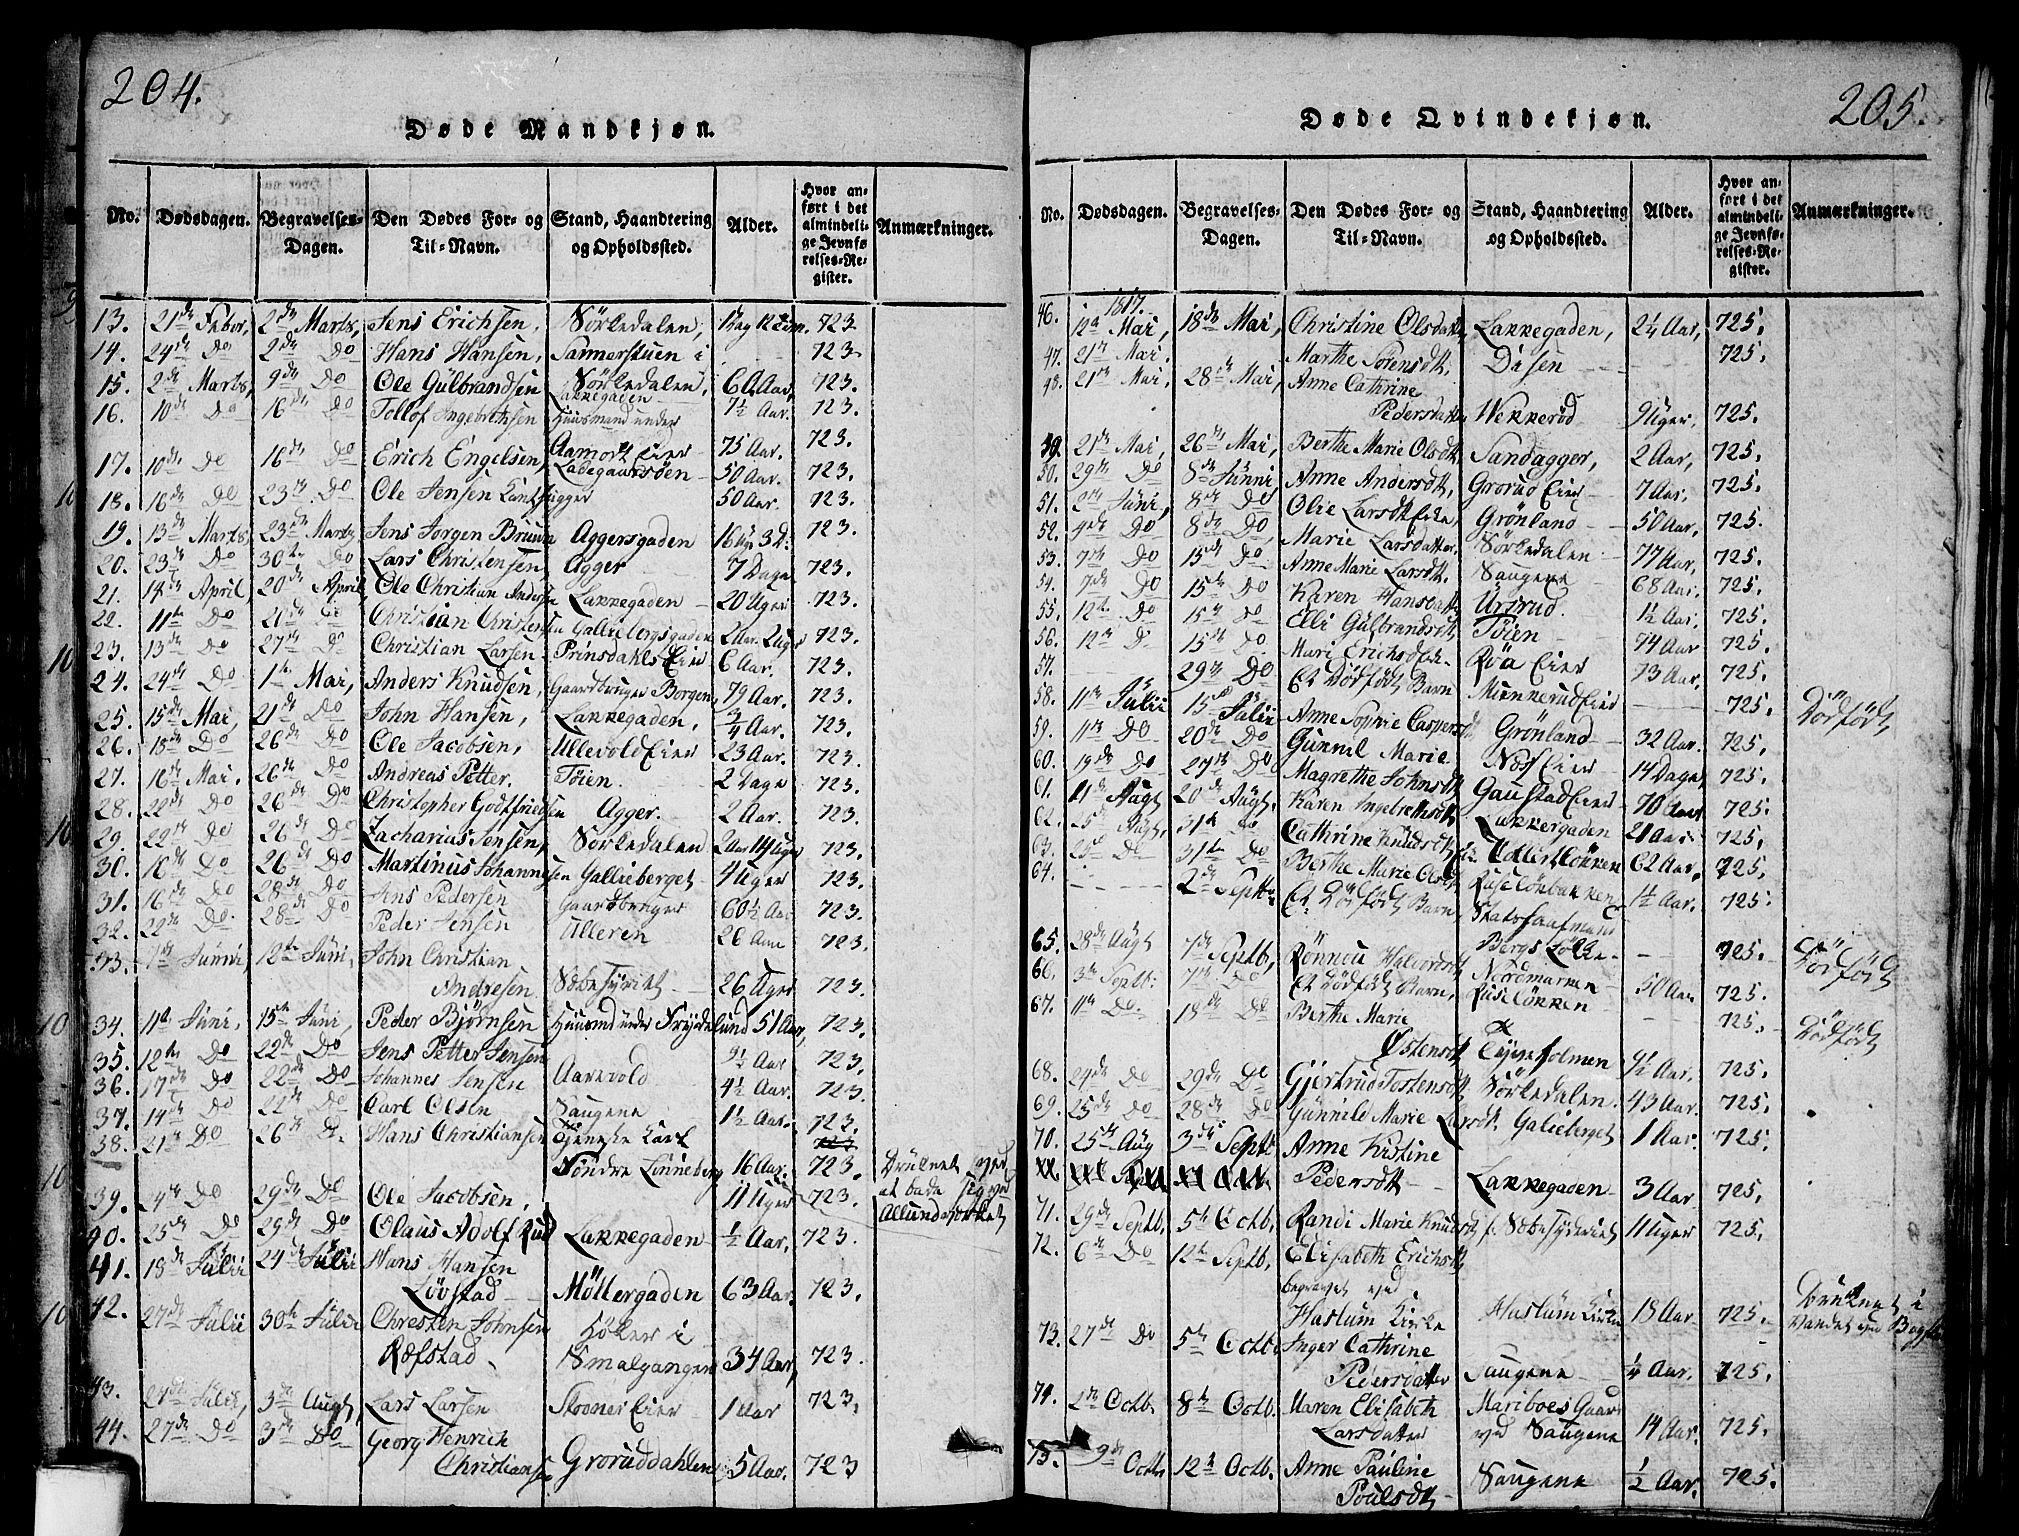 204.
Døde Mandkjøn.
No. Dødsdagen. Begravelses-Dagen. Den Dødes For- og Til-Navn. Stand, Haandtering og Opholdssted. Alder. Hvor anført i det almindelige Jevnførelses-Register. Anmærkninger.
13. 21de Febr, 2de Marts, Jens Erichsen, Sörkedalen, 1 Dag 12 Tim. 723
14. 24de Do 2de Do Hans Hansen, i 723
15. 2de Marts, 9de Do Ole Gülbrandsen Sörkedalen, 6 Aar, 723.
16. 10de Do 16de Do Tollof Ingebrethsen Lakkegaden 7½ Aar. 723.
Huusmand under
17. 10de Do 16de Do Erich Engelsen, Eier 75 Aar. 723.
18. 16de Do 23de Do Ole Jensen Ladegaardsöen 50 Aar. 723.
50 Aar. 723.
19. 13de Marts, 23de Marts, Jens Jörgen Bruun Aggersgaden 16 Uger 3 D. 723.
20. 23de Do 30te Do Lars Christensen Agger 7 Dage 723.
21. 14de April, 20de April, Ole Christian Andersen Lakkegaden 20 Uger 723.
22. 11te Do Do Christian Christensen Galliebergsgaden 2 Aar 2 Uger 723.
23. 13de Do 27de Do Christian Larsen Prinsdahls Eier 6 Aar. 723.
24. 24de Do 1te Mai, Anders Knudsen, Gaardbruger Borgen, 79 Aar. 723.
25. 15de Mai, 21de Do John Hansen, Lakkegaden, ¾ Aar. 723.
26. 18de Do 26de Do Ole Jacobsen, Ullevold Eier 23 Aar. 723.
27. 16de Mai. 26de Do Andreas Petter. Töien. 2 Dage 723.
28. 22de Do 26de Do Christopher Godtfriedsen Agger. 2 Aar. 723.
29. 22de Do 26de Do Zacharias Jensen, Sörkedalen 2 Aar 14 Uger 723.
30. 18de Do 26de Do Martinus Johannesen Gallieberget 4 Uger 723.
31. 16de Do 28de Do Jens Pedersen Gaardbruger 60½ Aar 723.
32. 22de Do. 28de Do Peder Jensen Ulleren 26 Aar 723.
33. 1te Junii, 12te Juni, John Christian
Andresen Sæbesyderiet 26 Uger 723.
34. 11te Juni, 15te Juni, Peder Björnsen Huusmd under Frydenlund 51 Aar, 723.
35. 12te Do 22de Do Jens Petter Jensen 9½ Aar 723.
36. 17de Do 22de Do Johannes Jensen Aarevold 4½ Aar. 723.
37. 14de Do 22de Do Carl Olsen Saugene 1½ Aar. 723.
38. 21de Do 26de D. Hans Christiansen Tjeneste Karl
Söndre Linneberg 16 Aar. 723. Druknet ved
39. 4de Do 29de Do Ole Jacobsen, 11 Uger 723. at bade sig ved
40. 25de Do 29de Do Olaus Adolf Rud Lakkegaden ½ Aar. 723. Allundværket
41. 18de Julii 24de Julii Hans Hansen
Lövstad Möllergaden 63 Aar. 723.
42. 27de Julii 30te Julii Christen Johnsen Höker i
Refstad Smalgangen 34 Aar, 723.
43. 27de Julii, 3de Augt, Lars Larsen Eier 1 Aar 723.
44. 27de Do 3de Do Georg Henrich
Christiansen Groruddahlen 5 Aar. 723
205.
Døde Qvindekjøn.
No. Dødsdagen. Begravelses-Dagen. Den Dødes For- og Til-Navn. Stand, Haandtering og Opholdssted. Alder. Hvor anført i det almindelige Jevnførelses-Register. Anmærkninger.
1817.
46. 12te Mai, 18de Mai, Christine Olsdatter Lakkegaden, 2¼ Aar, 725.
47. 21de Mai. Marthe Sörensdt. Disen 725.
48. 21de Mai, 28de Mai, Anne Cathrine
Pedersdatter Wekkeröd 9 Uger, 725.
49. 21de Mai, 26de Mai, Berthe Marie Olsdt, Sandagger, 2 Aar, 725.
50. 29de Do 8de Junni Anne Andersdt, Grorud Eier 7 Aar. 725.
51. 2de Juni, 8de Do Olie Larsdt Eier, Grönland 50 Aar, 725.
52. 4de Do 8de Do, Marie Larsdatter Sörkedalen 77 Aar, 725.
53. 7de Do 15de Do Anne Marie Larsdt. Saugene 68 Aar. 725.
54. 7de Do 15de Do Karen Hansdatter 1½ Aar, 725.
55. 12te Do 15de Do Elli Gulbrandsdt Töien 74 Aar 725.
56. 12te D. 15de Do. Mari Erichsdt Röa Eier 73 Aar, 725.
57. 29de Do Et Dödfödt Barn Eier 725. Dödfödt
58. 11te Julii 15de Julii Anne Sophie Caspersdt Grönland 32 Aar. 725.
59. 11te Do 20de Do Gunnil Marie Eier 14 Dage, 725.
60. 19de Do 27de Do Magrethe Johnsdt Gaustad Eier 70 Aar 725.
61. 11te Augt 20de Augt. Karen Ingebrethsdt Lakkegaden 21 Aar. 725.
62. 25de Augt, 31te Do Cathrine Knudsdt 62 Aar, 725.
63. 25de Do 31te Do Berthe Marie Olsdt Ruselöbakken 1½ Aar. 725.
64. 2de Septb. Et Dödfödt Barn, Statsraad
Bergs Lökke 725. Dödfödt
65. 28de Augt 7de Septb, Rönnou Halvorsdt Nordmarken 50 Aar 725.
66. 3de Septb. 7de Do Et Dödfödt Barn, Ruselökken 725. Dödfödt
67. 11te Do. 18de Do Berthe Marie
Östensdt 9½ Aar. 725.
68. 24de Do 29de Do Gjertrud Tostensdt Sörkedalen 43 Aar. 725.
69. 25de Do 28de Do. Gunnild Marie Larsdt. Galieberget 1 Aar. 725.
70. 25de Aug 3de Septb Anne Kistine
Pedersdt Lakkegaden 3 Aar 725.
71. 29de Septb. 5te Octb, Randi Marie Knudsdt f. Sæbesyderiet 11 Uger 725.
72. 6de Do 12te Septb, Elisabeth Erichsdt
begravet ved
Haslum Kirke Haslum Kirke 18 Aar 725. Druknet i
Vandet ved
73. 27de Do 5te Octb. Inger Cathrine
Pedersdatter Saugene ¼ Aar. 725.
74. 2de Octb. 8te Octb. Maren Elisabeth Mariboes Gaard
Larsdatter ved Saugene 14 Aar. 725.
75. 9de Octb 12te Octb. Anne Pauline
Poulsdt Saugene ½ Aar. 725.